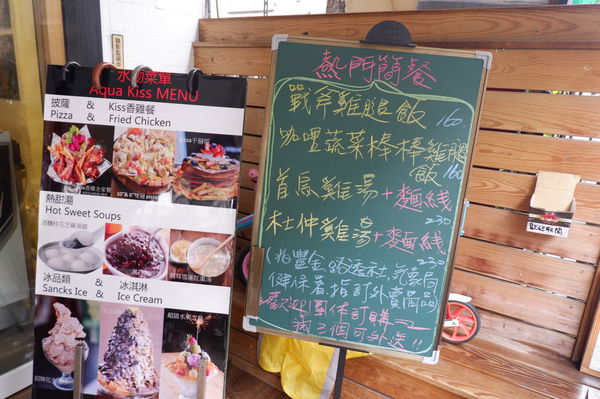 水吻菜單
Aqua Kiss MENU
披薩 & Kiss香雞餐
Pizza & Fried Chicken
10" & 6"雙層 pizza
熱甜湯
Hot Sweet Soups
冰品類 & 冰淇淋
Sancks Ice & Ice Cream
熱門簡餐
戰斧雞腿飯 160
咖哩蔬菜棒棒雞腿飯 160
首烏雞湯+麵線 230
杜仲雞湯+麵線 230
(兆豐金、路透社、氣象局
健保署指訂外賣
歡迎團体訂購
滿2個可外送!!